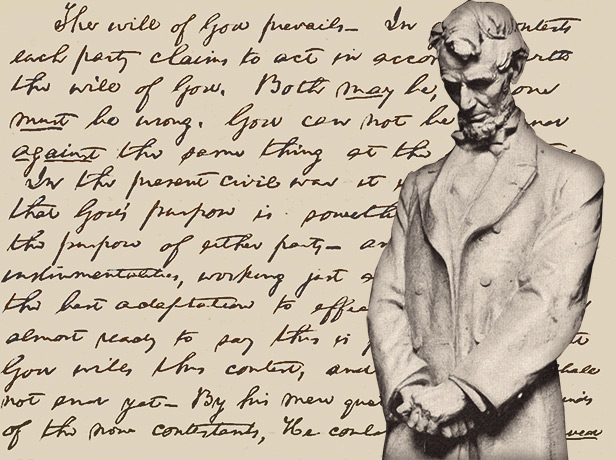 The will of God prevails— In ontests
each party claims to act in accor
the will of God. Both may be, one
must be wrong. God can not be
against the same thing at the
In the present civil war it
that God's purpose is somethi
the purpose of either party— an
instrumentalities, working just
the best adaptation to effec
almost ready to say this is
God wills this contest, and shall
not end yet— By his mere quie
of the now contestants, He could